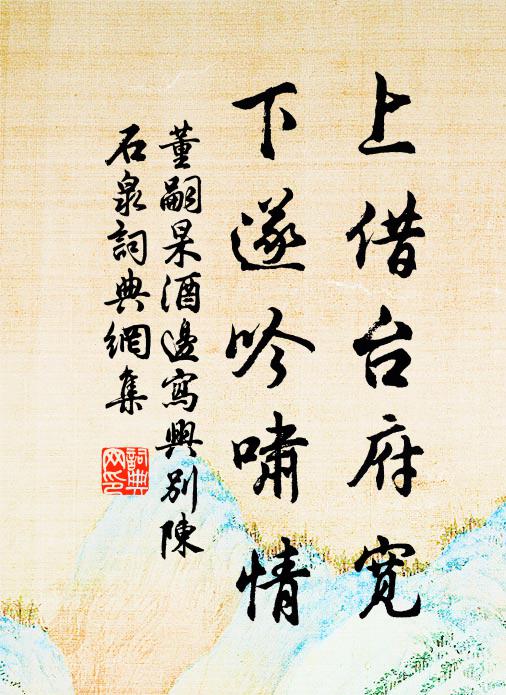 上借台府寬
下遂吟嘯情
董嗣杲酒邊寫興別陳
石泉詞典網集
詞典
网印